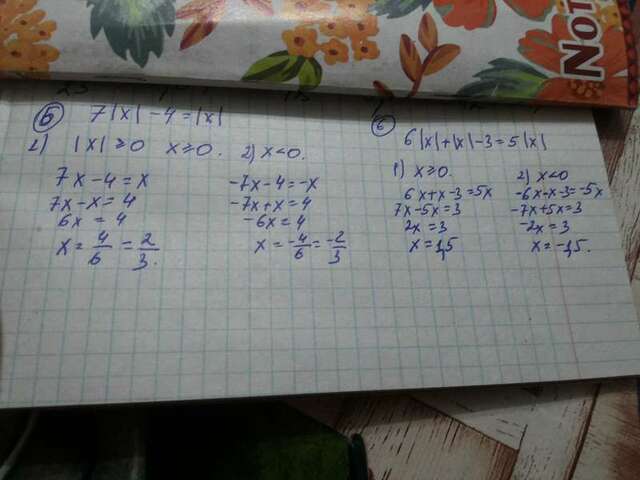 Not
5
7|x| - 4 = |x|
1) |x| ≥ 0 x ≥ 0.
7x - 4 = x
7x - x = 4
6x = 4
x = 4/6 = 2/3.
2) x < 0.
-7x - 4 = -x
-7x + x = 4
-6x = 4
x = -4/6 = -2/3
6
6|x| + |x| - 3 = 5|x|
1) x ≥ 0.
6x + x - 3 = 5x
7x - 5x = 3
2x = 3
x = 1,5
2) x < 0
-6x - x - 3 = -5x
-7x + 5x = 3
-2x = 3
x = -1,5.